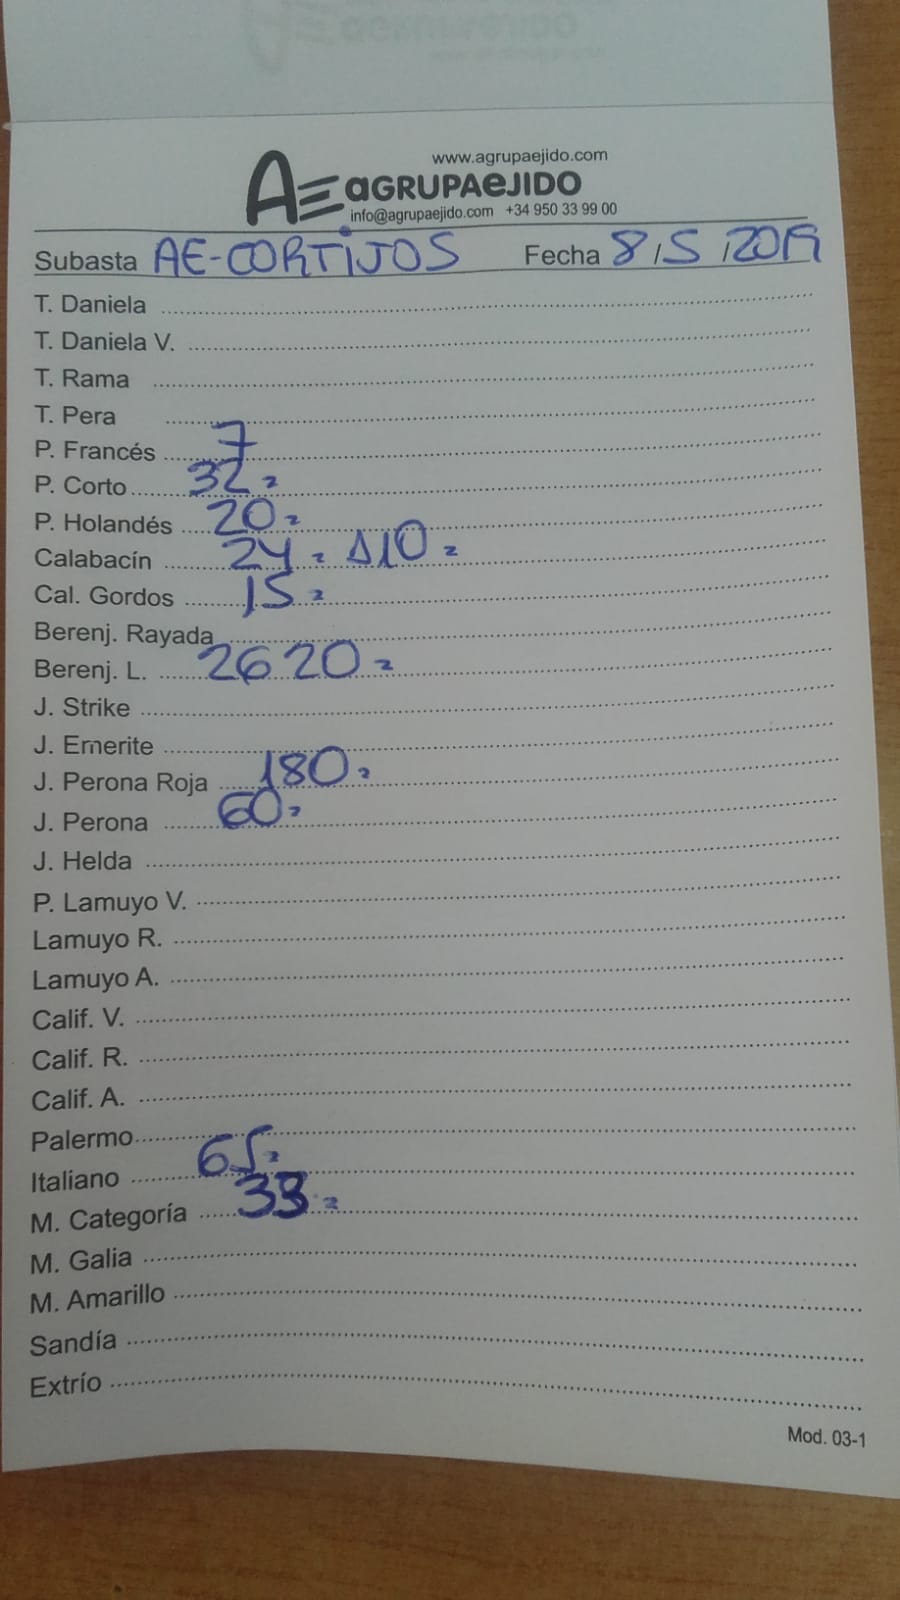 www.agrupaejido.com
AE aGRUPAeJIDO
info@agrupaejido.com +34 950 33 99 00
Subasta AE-CORTIJOS Fecha 8/5/2019
T. Daniela
T. Daniela V.
T. Rama
T. Pera
P. Francés 7
P. Corto 32
P. Holandés 20
Calabacín 24 Δ10
Cal. Gordos 15
Berenj. Rayada
Berenj. L. 26 20
J. Strike
J. Emerite
J. Perona Roja 180
J. Perona 60
J. Helda
P. Lamuyo V.
Lamuyo R.
Lamuyo A.
Calif. V.
Calif. R.
Calif. A.
Palermo
Italiano 65
M. Categoría 33
M. Galia
M. Amarillo
Sandía
Extrío
Mod. 03-1